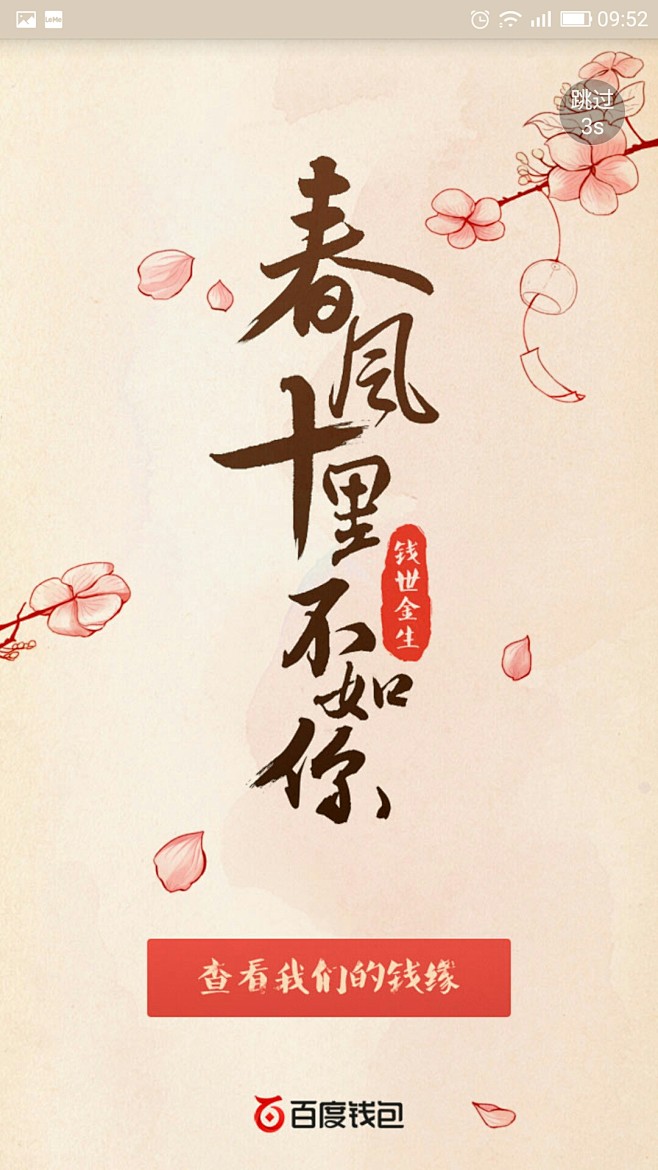 LeMe
09:52
跳过
3s
春风十里不如你
钱世金生
查看我们的钱缘
百度钱包